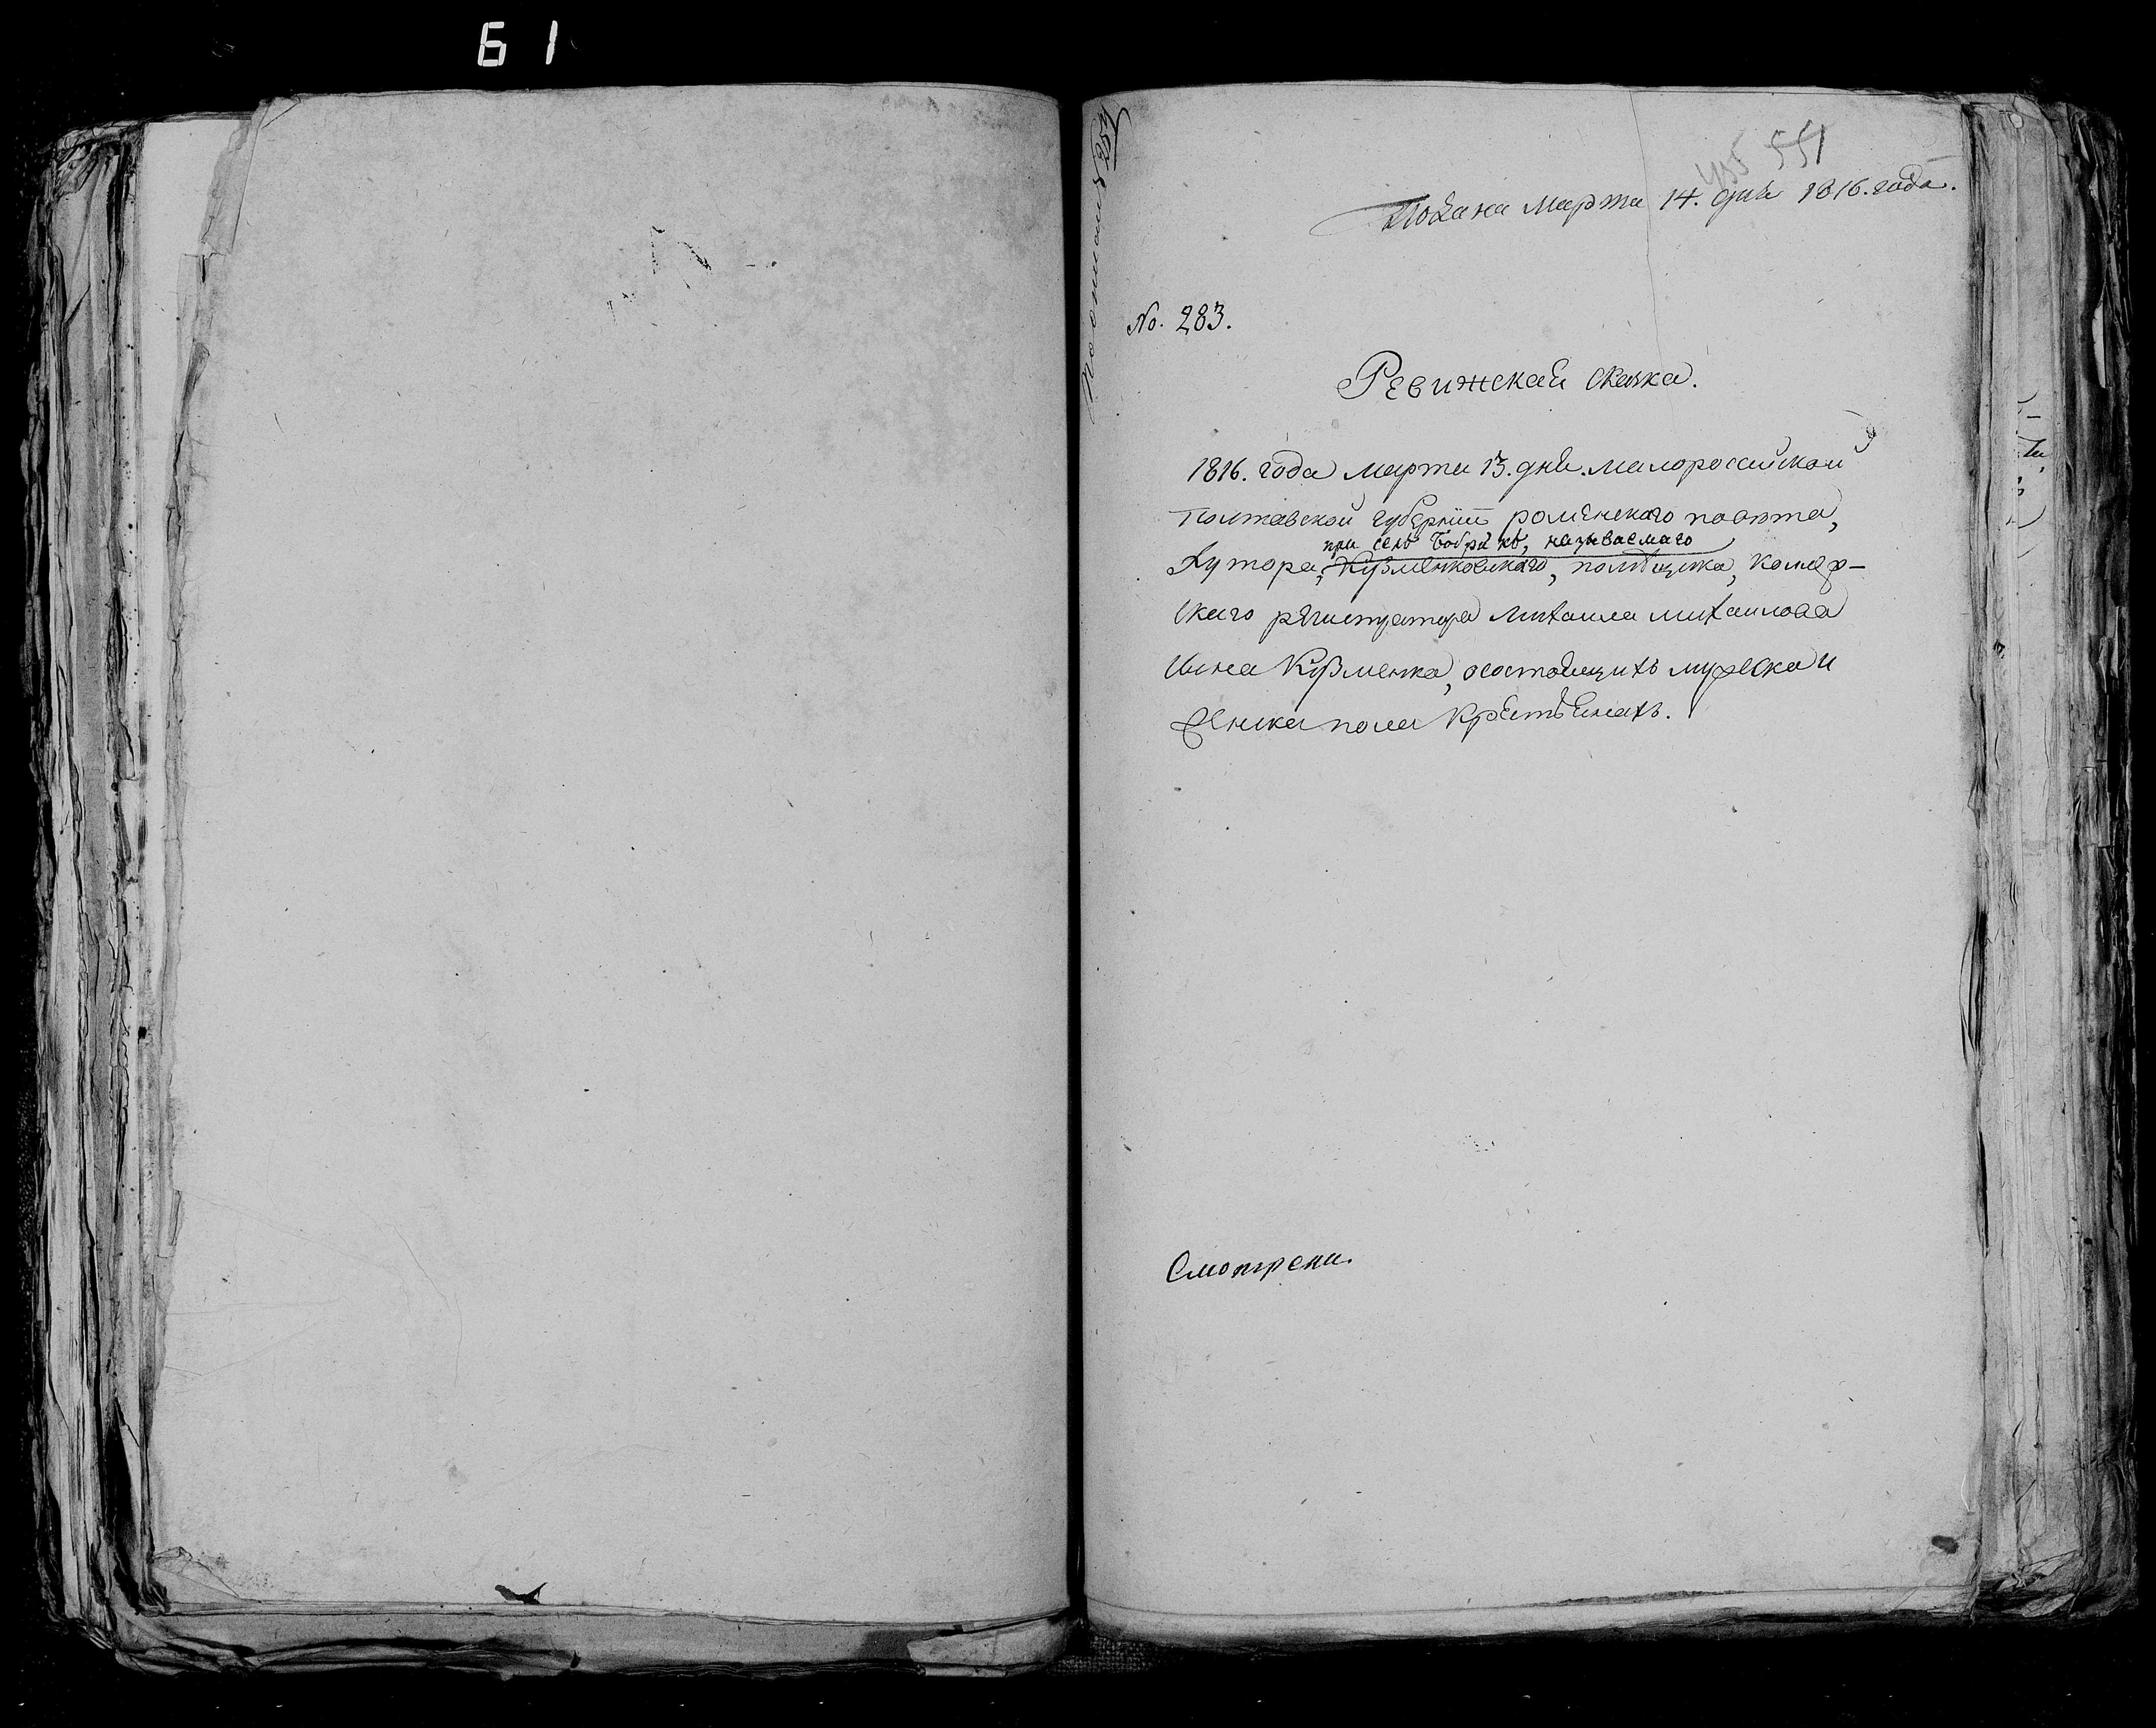 61
455 551
Подана марта 14. дня 1816. года.
No. 283.
Ревижская сказка.
1816. года марта 13. дня. малоросийской
Полтавской губернїи роменского повѣта,
при селѣ Бобрикѣ, называемаго
хутора, Кузменковского, помѣщика, колеж-
ского регистратора михаила михаилова
сина Кузменка, осостоящихъ мужеска и
женска пола крѣстьянахъ.
Смотрени.